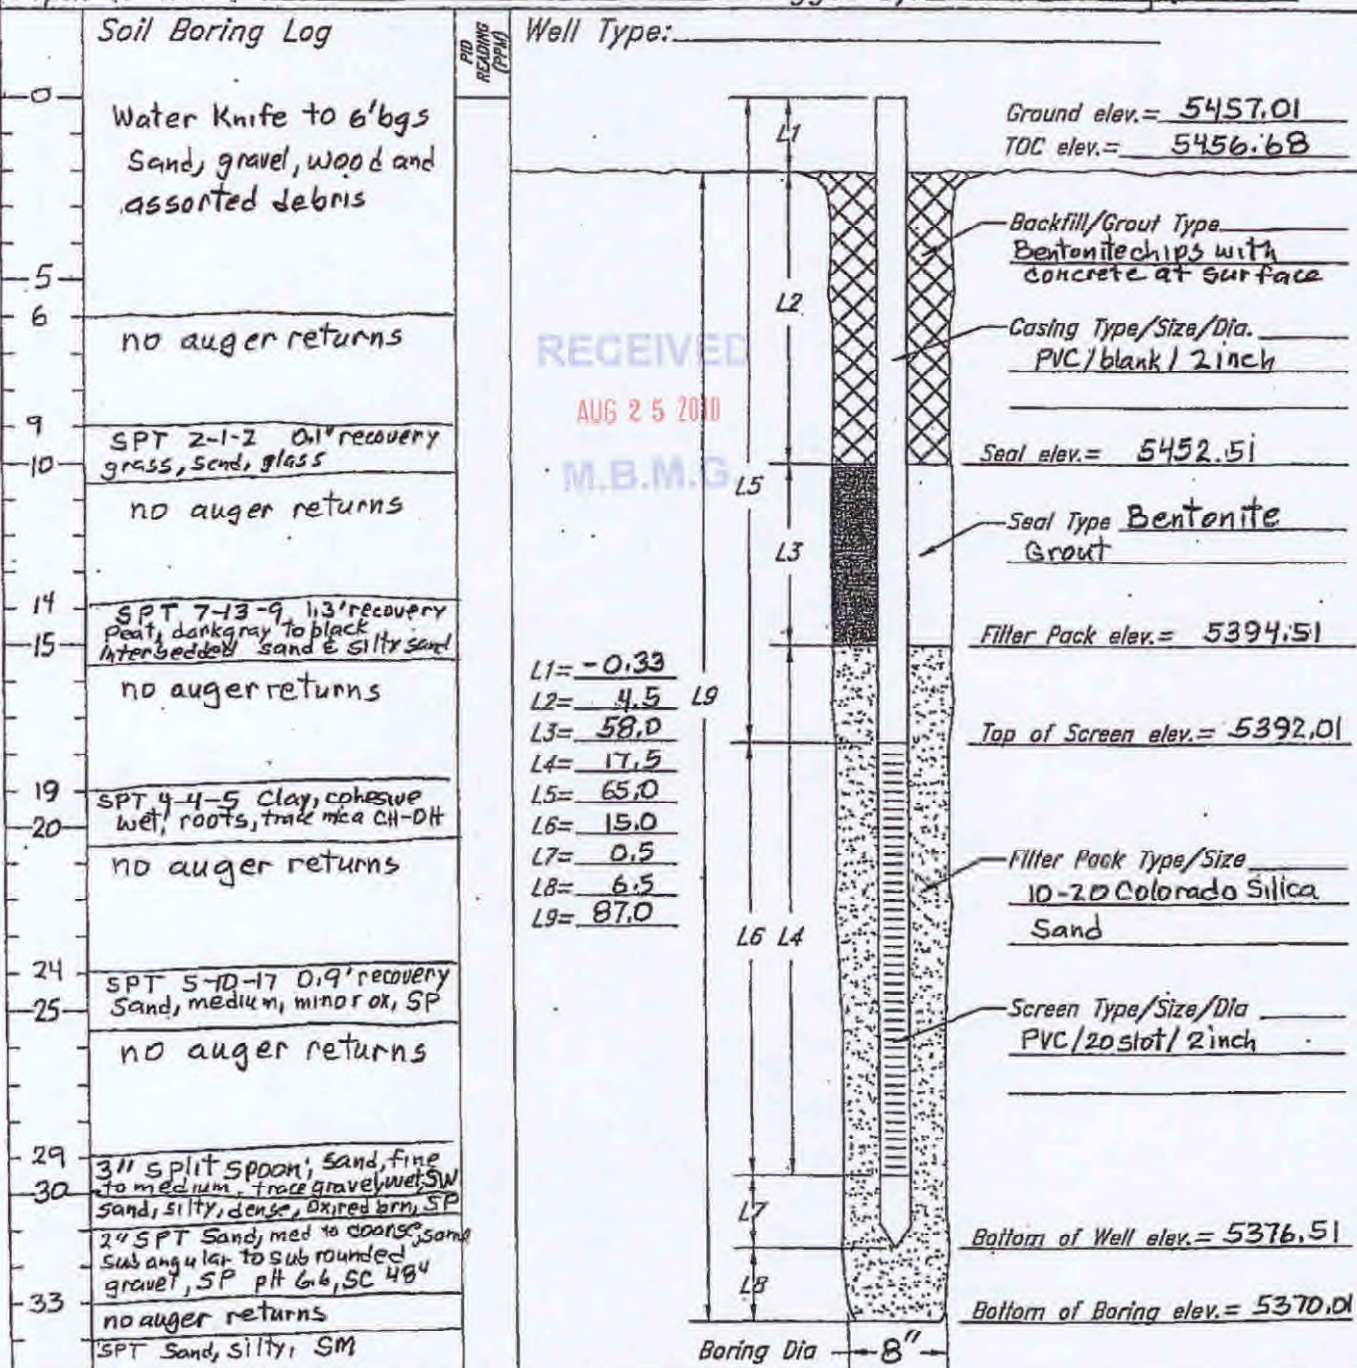 Soil Boring Log
PID READING (PPM)
Well Type:
0
Water Knife to 6'bgs
Sand, gravel, wood and
assorted debris
5
6
no auger returns
9
SPT 2-1-2 0.1' recovery
grass, sand, glass
10
no auger returns
14
SPT 7-13-9 1.3' recovery
Peat, dark gray to black
interbedded sand & silty sand
15
no auger returns
19
SPT 4-4-5 Clay, cohesive
wet, roots, trace mica CH-OH
20
no auger returns
24
SPT 5-10-17 0.9' recovery
Sand, medium, minor ox, SP
25
no auger returns
29
3" split spoon; sand, fine
to medium, trace gravel, wet, SW
30
sand, silty, dense, ox, red brn, SP
2" SPT Sand, med to coarse, some
sub angular to sub rounded
gravel, SP pH 6.6, SC 484
33
no auger returns
SPT Sand, silty, SM
RECEIVED
AUG 25 2010
M.B.M.G.
L1= -0.33
L2= 4.5
L3= 58.0
L4= 17.5
L5= 65.0
L6= 15.0
L7= 0.5
L8= 6.5
L9= 87.0
L1
L2
L5
L3
L9
L6 L4
L7
L8
Ground elev.= 5457.01
TOC elev.= 5456.68
Backfill/Grout Type
Bentonite chips with
concrete at surface
Casing Type/Size/Dia.
PVC/blank/2 inch
Seal elev.= 5452.51
Seal Type Bentonite
Grout
Filter Pack elev.= 5394.51
Top of Screen elev.= 5392.01
Filter Pack Type/Size
10-20 Colorado Silica
Sand
Screen Type/Size/Dia
PVC/20 slot/2 inch
Bottom of Well elev.= 5376.51
Bottom of Boring elev.= 5370.01
Boring Dia 8"